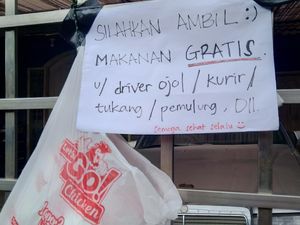 SILAHKAN AMBIL :)
MAKANAN GRATIS.
u/ driver ojol / kurir/
tukang / pemulung, Dll.
Semoga sehat selalu
Let's
GO!
Chicken